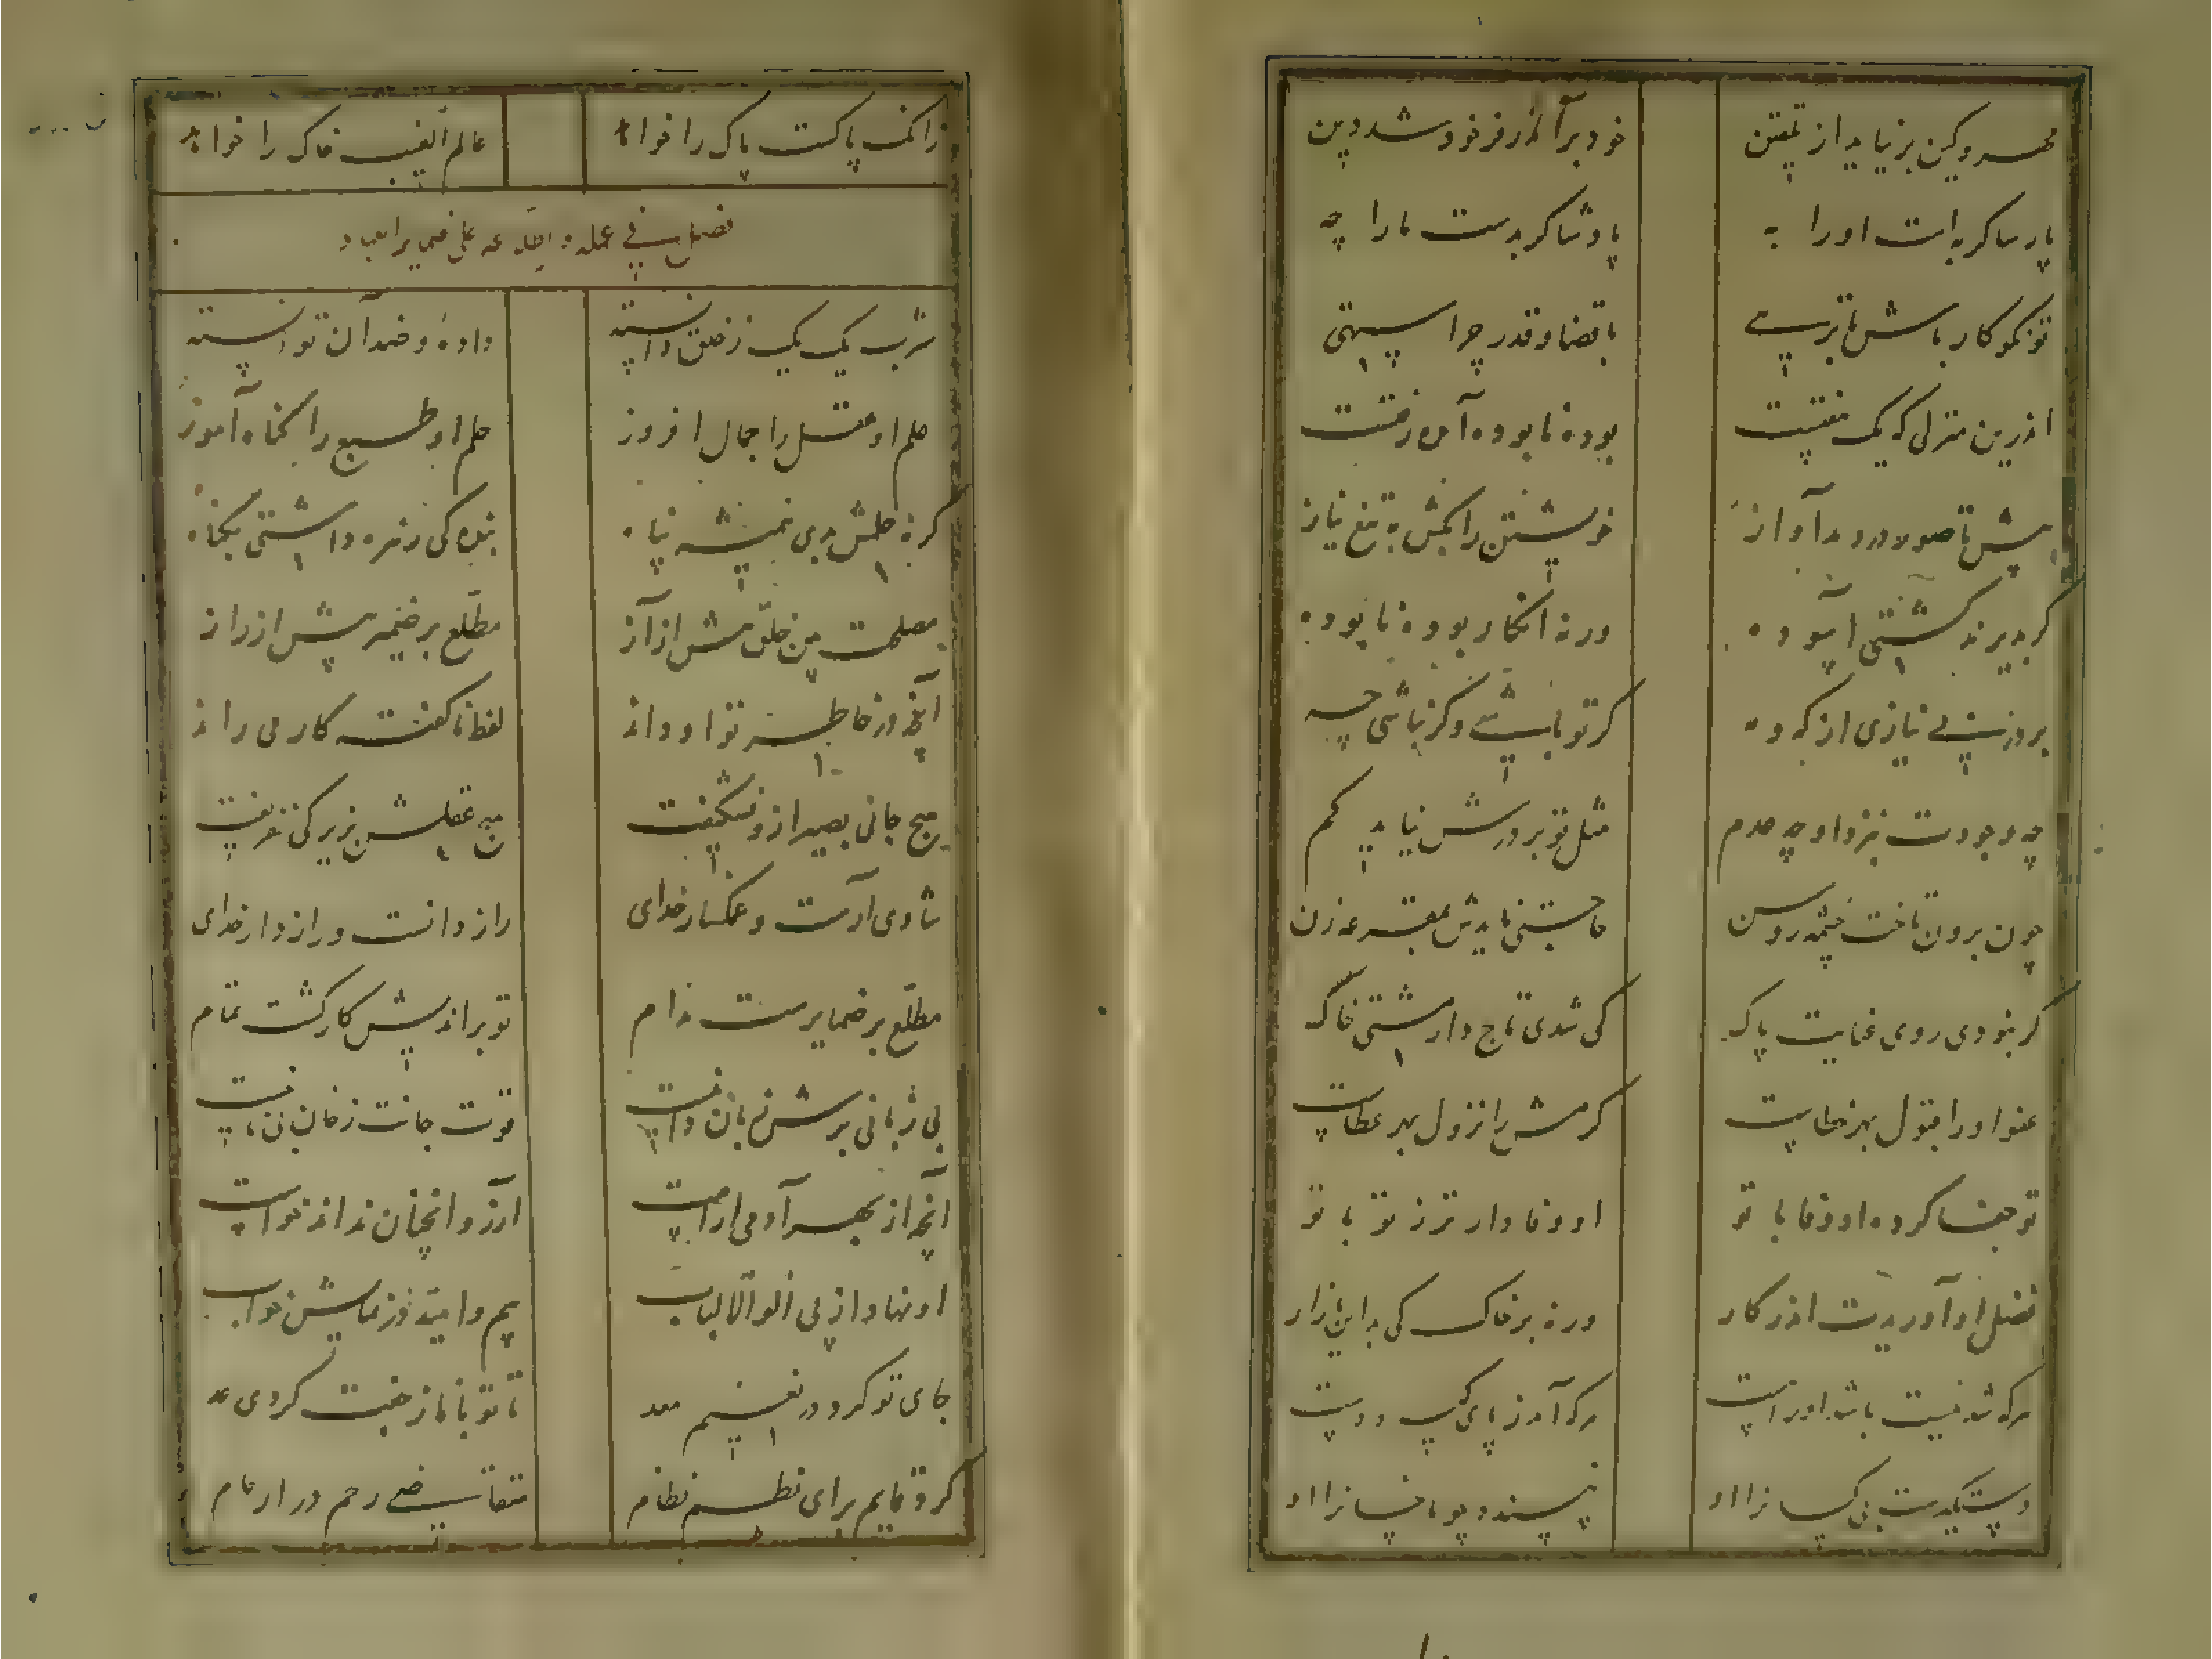 پارسا گر بد است او را به پادشا گر بدست ما را چه
تو نکو کار باش تا برهی با قضا و قدر چرا ستهی
اندرین منزلی که یک هفتست بوده نابوده آمده رفتست
پیش تا صور در دمد آواز خویشتن را بکش به تیغ نیاز
گر پذیرند کشتی آسوده ورنه انگار بوده نابوده
بر در بی نیازی از که و مه گر تو باشی و گر نباشی چه
چه وجودت بنزد او چه عدم مثل تو بر درش نیاید کم
چون برون تاخت چشمه روشن حاجتی نایدش بمقرعه زن
گر نبودی روی عنایت پاک کی شدی تاج دار مشتی خاک
عفو او را قبول بهر خطاست کرمش را نزول بهر عطاست
تو جفا کرده او وفا با تو او وفادارتر ز تو با تو
فضل او آوریدت اندر کار ورنه بر خاک کی بد این بازار
هر که شد نیست باشد او را هست هر که آمد ز پای دست
دستگیرست بی کسانرا او نپسندد چو ما خسانرا او
زانکه پاکست پاک را خواهد عالم الغیب خاک را خواهد
فصل فی علمه و اطلاعه علی ضمایر العباد
شرب یک یک ز خلق دانسته داده و ضد آن توانسته
علم او عقل را جمال افروز حلم او طبع را گناه آموز
گر نه حلمش بدی همیشه پناه بنده کی زهره داشتی بگناه
مصلحت بین خلق پیش از آز مطلع بر ضمیر پیش از راز
آنچه در خاطر تو او داند لفظ ناگفته کار می راند
هیچ جانی بصبر ازو نشگیفت هیچ عقلش بزیرکی نفریفت
شادی آرست و غمگسار خدای رازدانست و رازدار خدای
مطلع بر ضمایرست مدام تو براندیش کار گشت تمام
بی زبانی برش زبان دانیست قوت جانت ز خوان بی نانیست
آنچه از بهر آدمی آراست آرزو آنچنان نداند خواست
او نهاد از پی اولو الالباب بیم و امید در نمایش خواب
جای تو کرد در نعیم معد تا تو با ناز جفت کردی
کرد قایم برای نظم نظام متقاضی رحم در ارحام